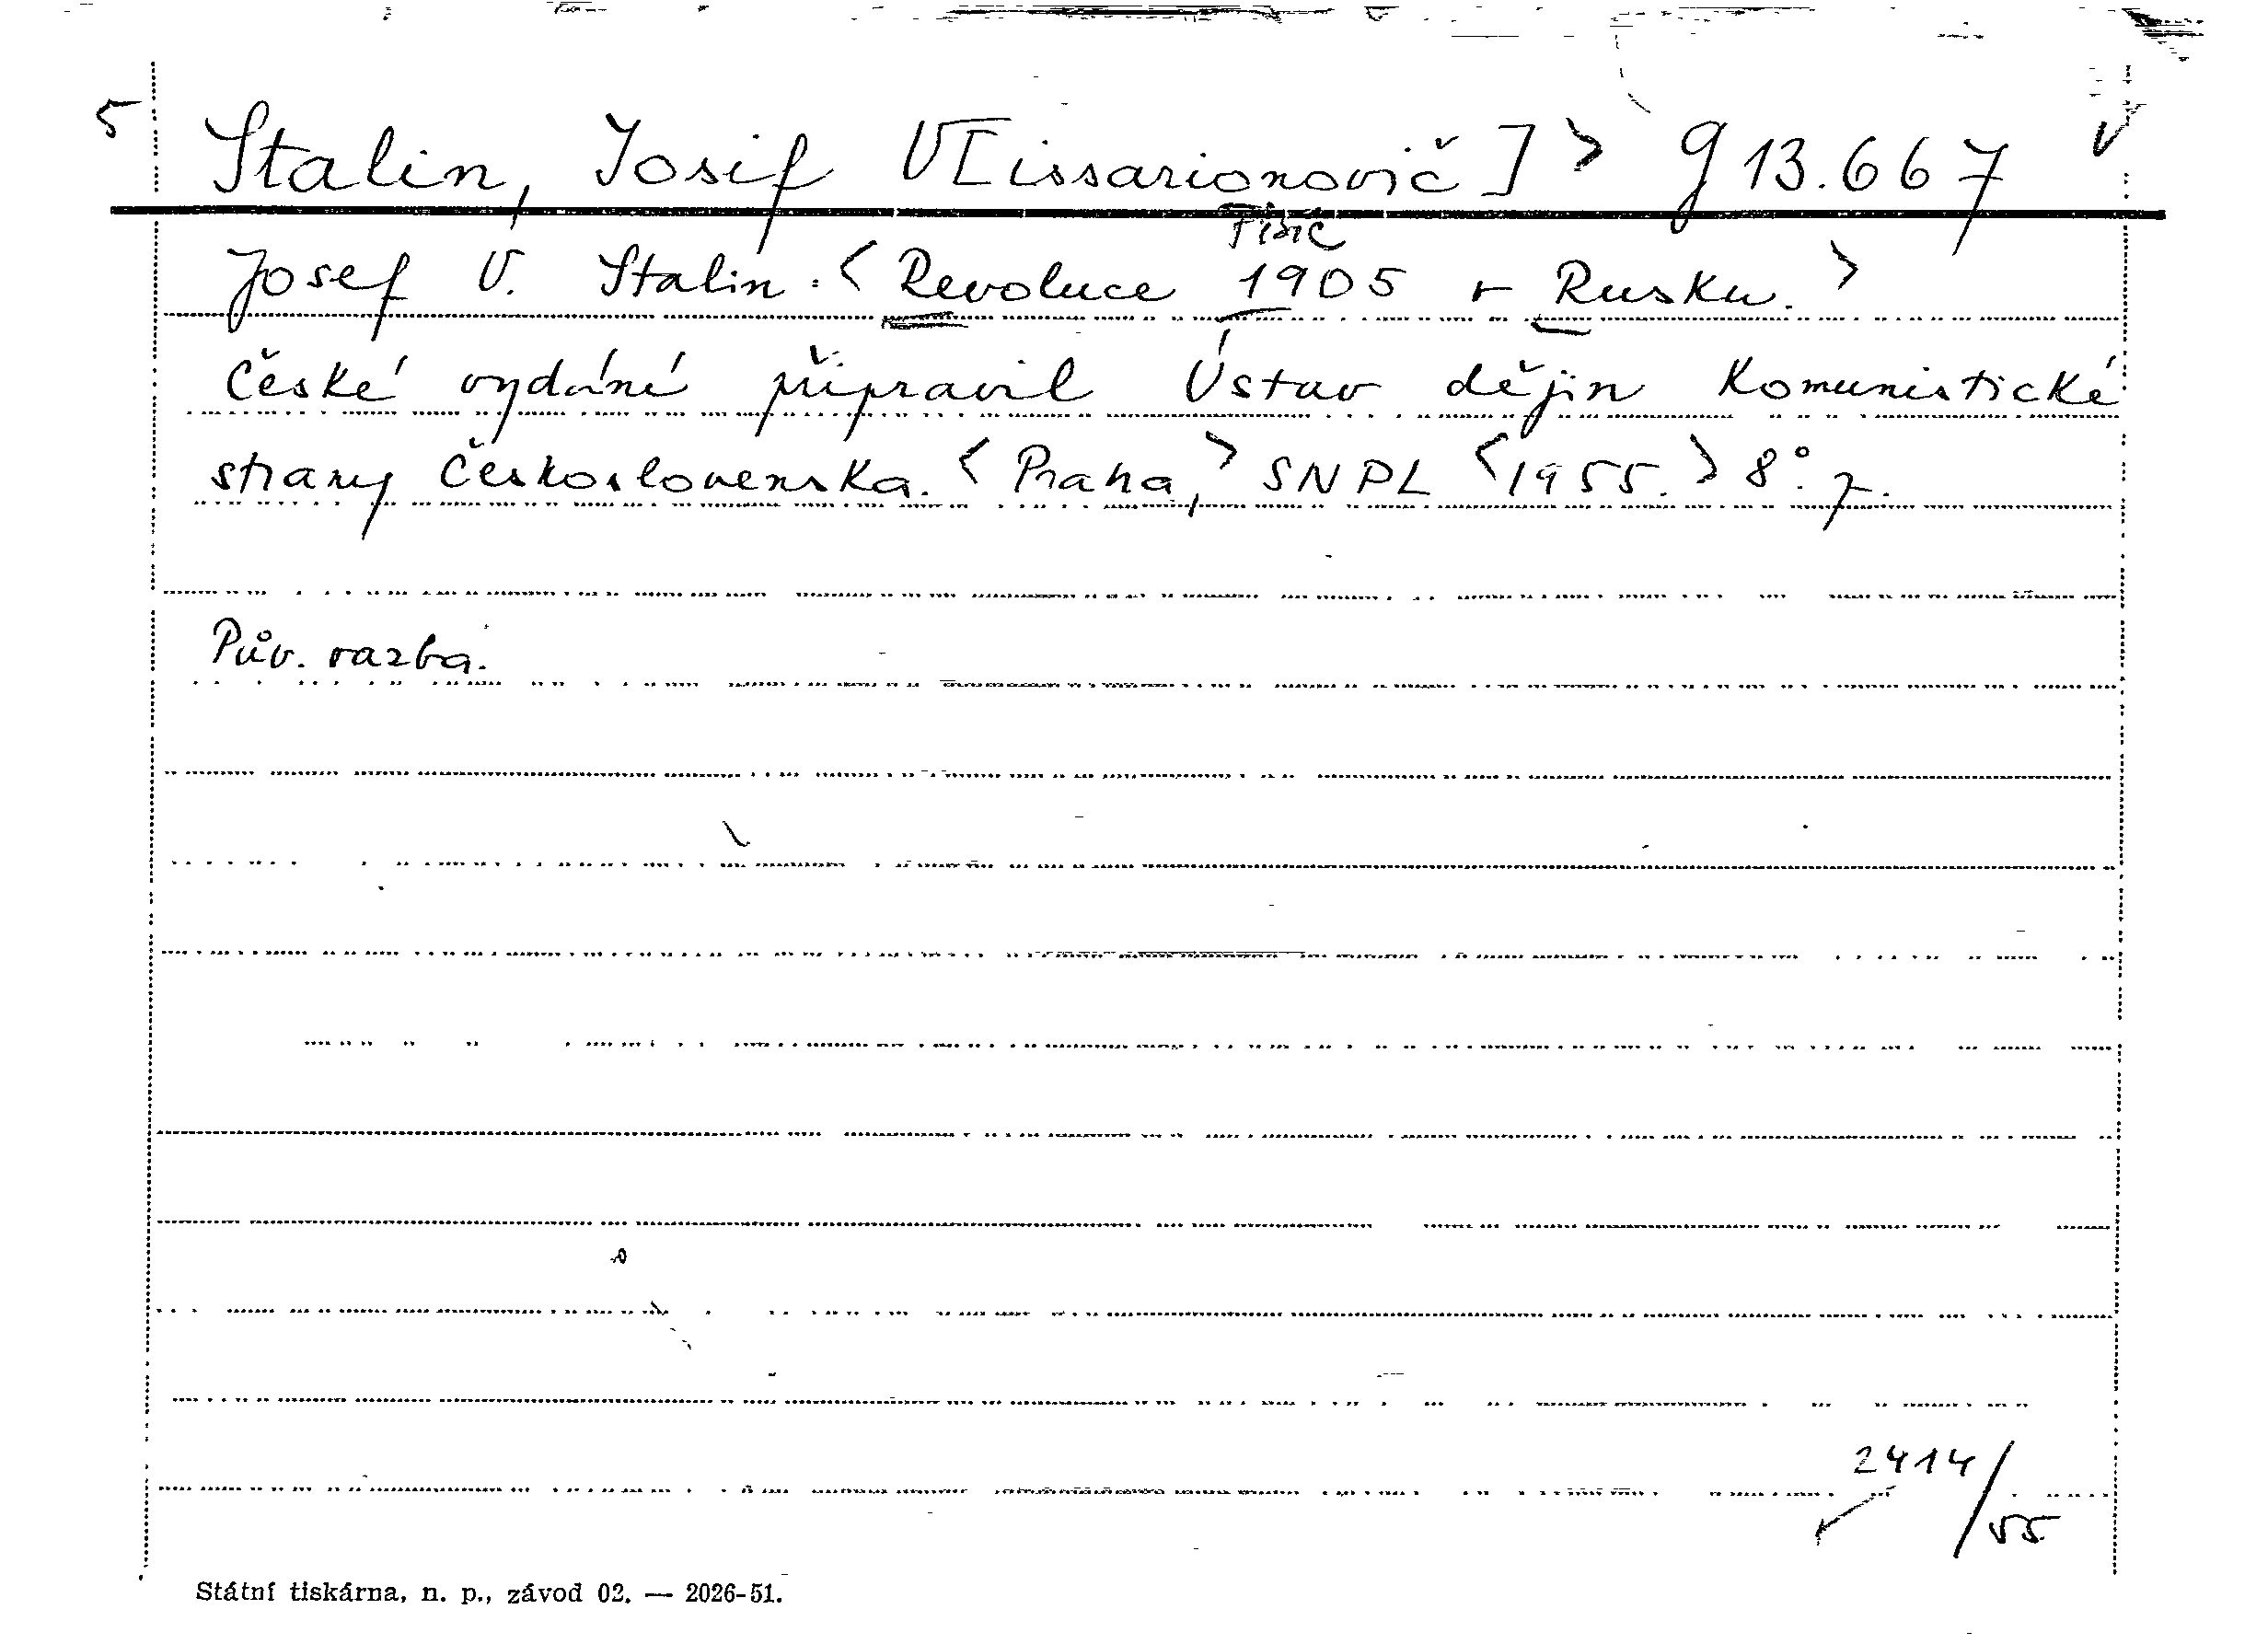 5 Stalin, Josif V[issarionovič] > g 13.667 V
Tisíc
Josef V. Stalin: < Revoluce 1905 v Rusku. >
České vydání připravil Ústav dějin Komunistické
strany Československa. < Praha, > SNPL < 1955. > 8°. 7.
Pův. vazba.
2414/55
Státní tiskárna, n. p., závod 02. — 2026-51.